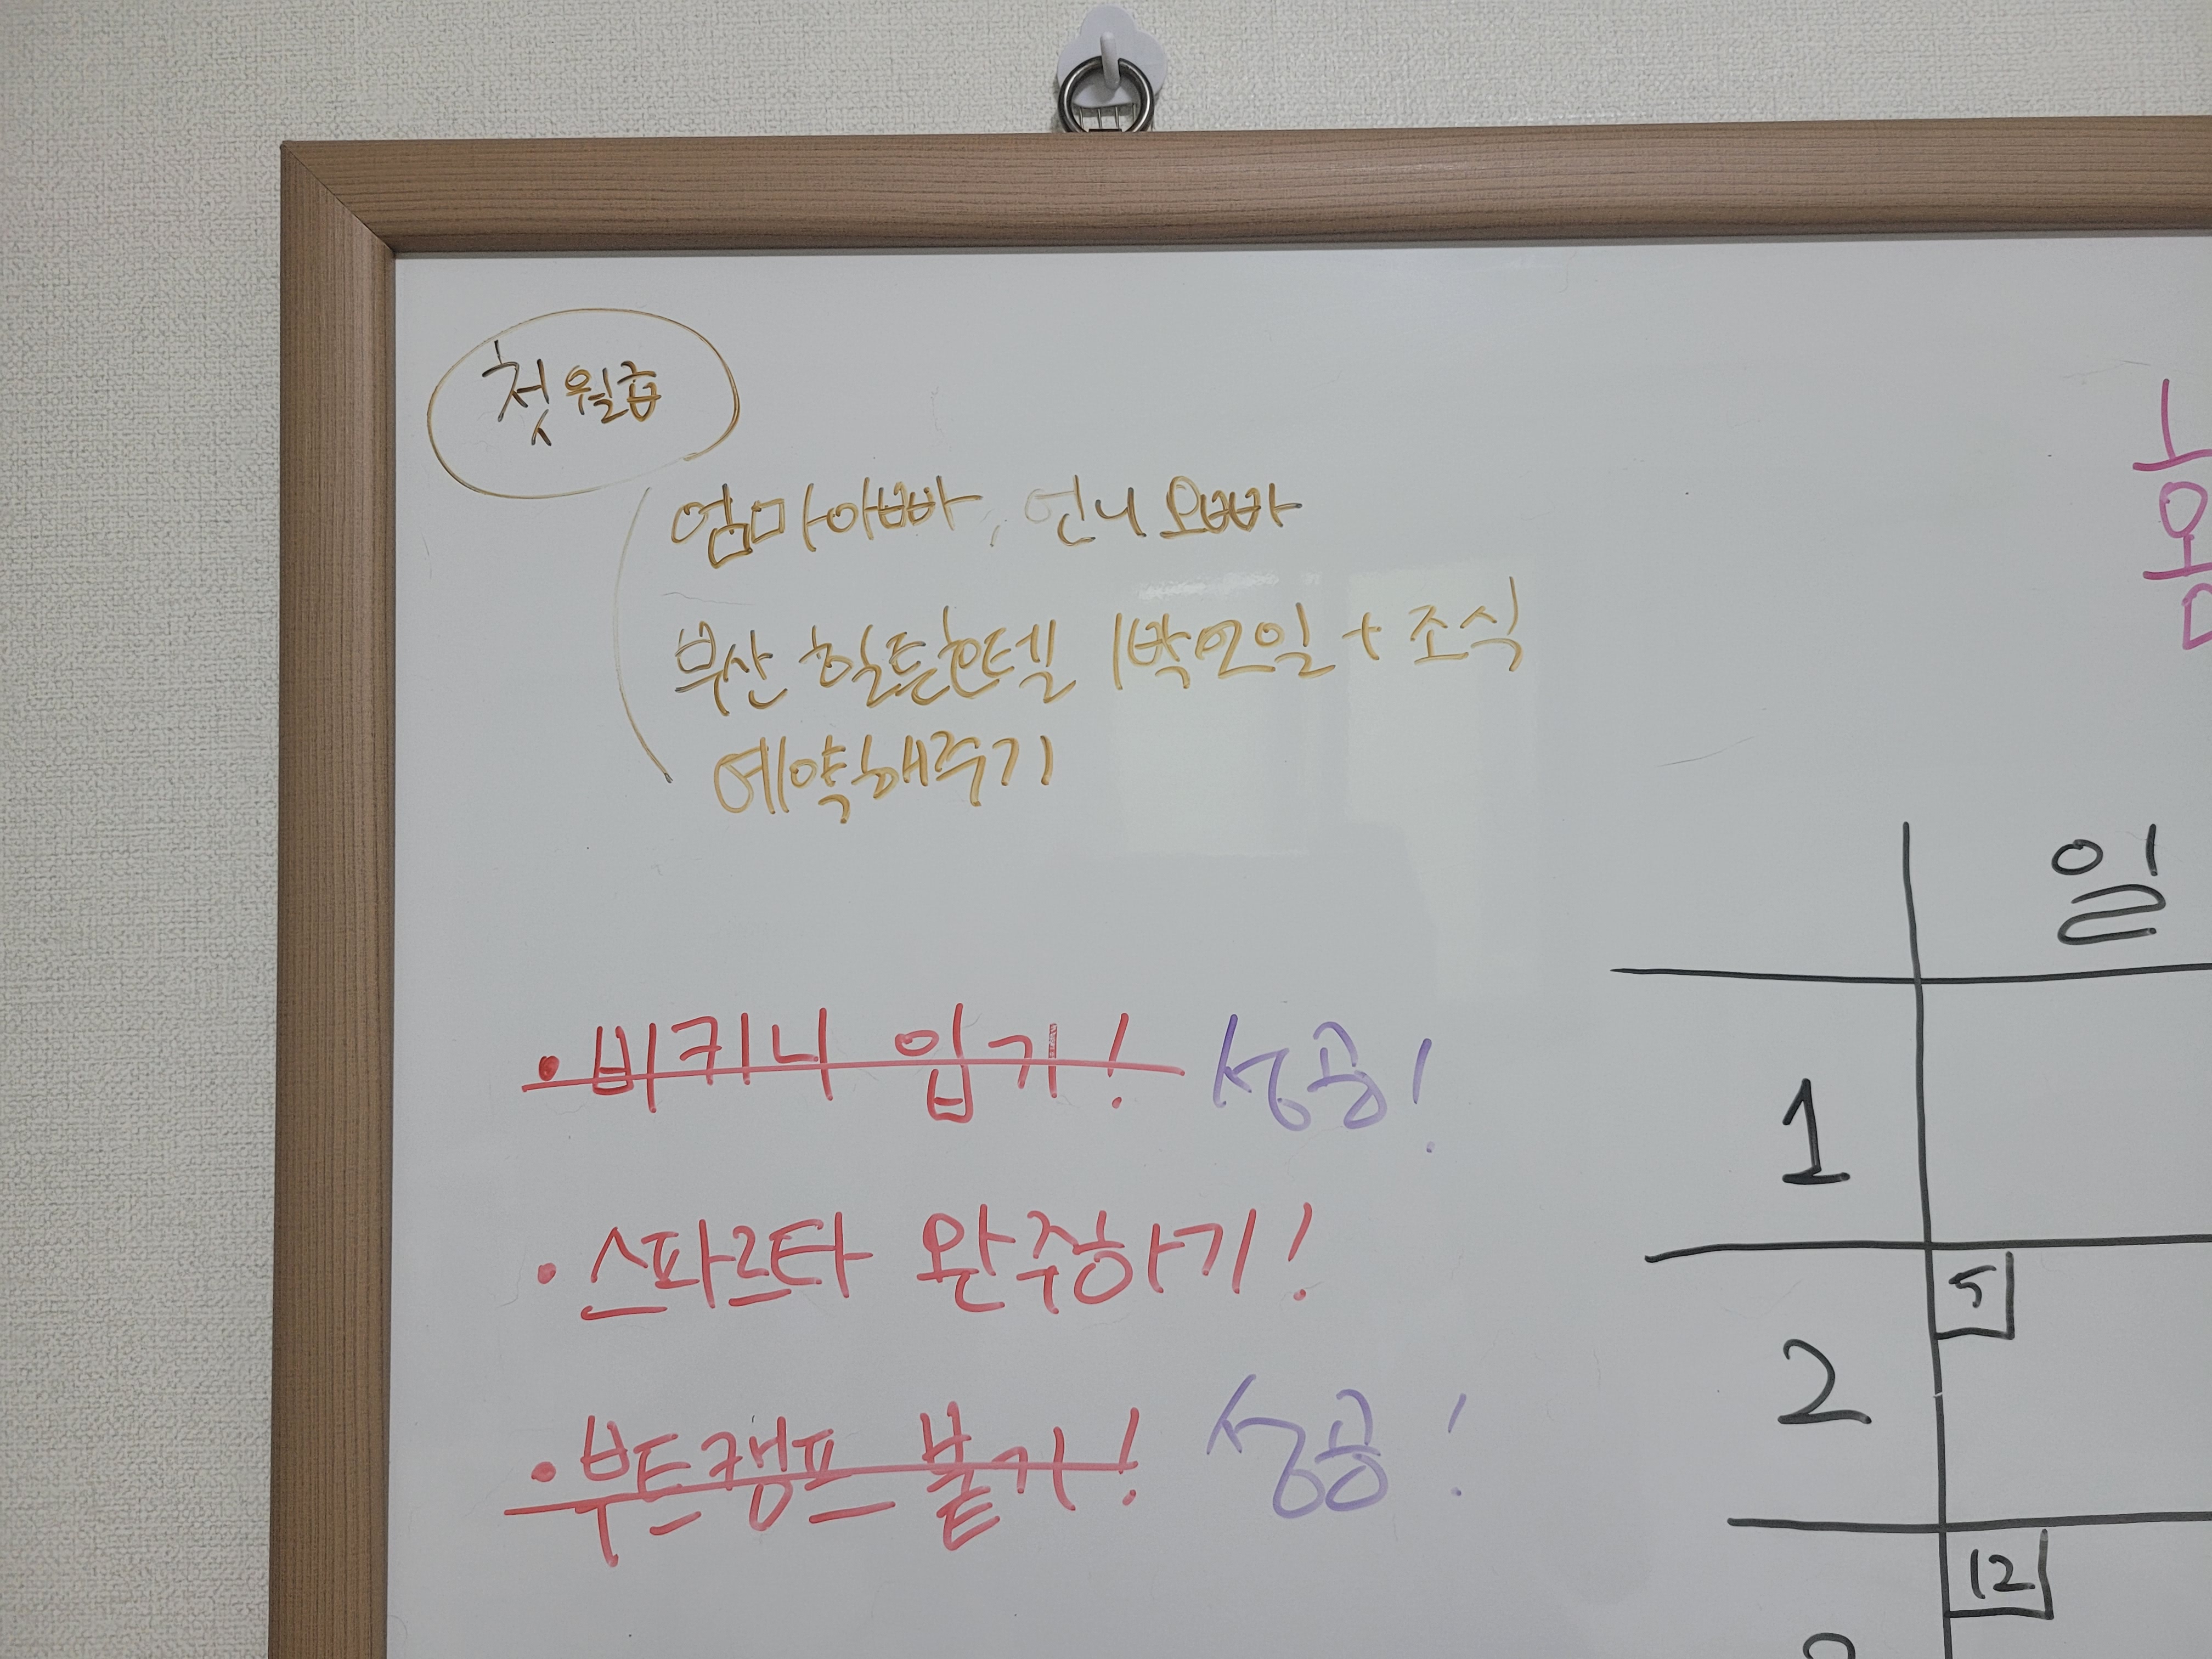 첫월급
엄마아빠, 언니오빠
부산 힐튼호텔 1박2일 + 조식
예약해주기
• 비키니 입기! 성공!
• 스파르타 완주하기!
• 부트캠프 붙기! 성공!
일
1
5
2
12